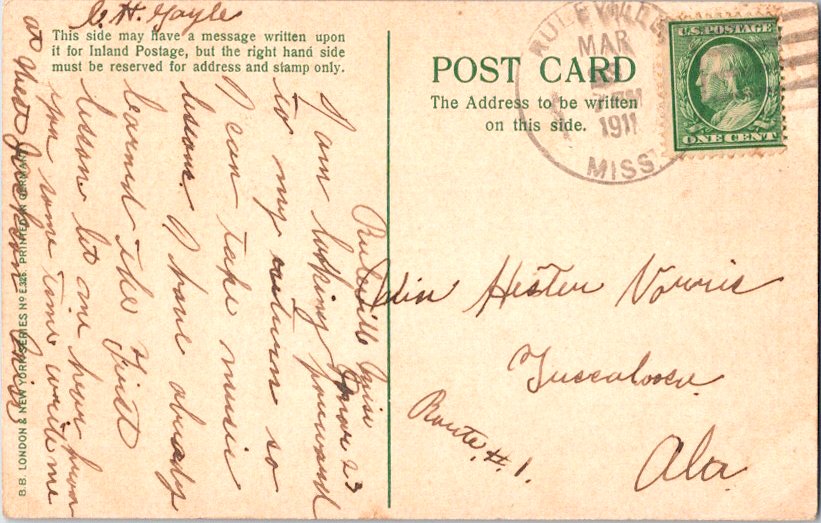 C. H. Gayle
This side may have a message written upon
it for Inland Postage, but the right hand side
must be reserved for address and stamp only.
POST CARD
The Address to be written
on this side.
RULEVILLE
MAR
1911
MISS
U.S. POSTAGE
ONE CENT
Ruleville Miss
Mar 23
I am looking forward
to my return so
I can take music
lesson I have already
learned the First
lesson let me hear from
you some time write me
at West Jackson Miss
Miss Hester Norris
Tuscaloosa
Route #1.
Ala
B.B. LONDON & NEW YORK SERIES No E.325. PRINTED IN GERMANY